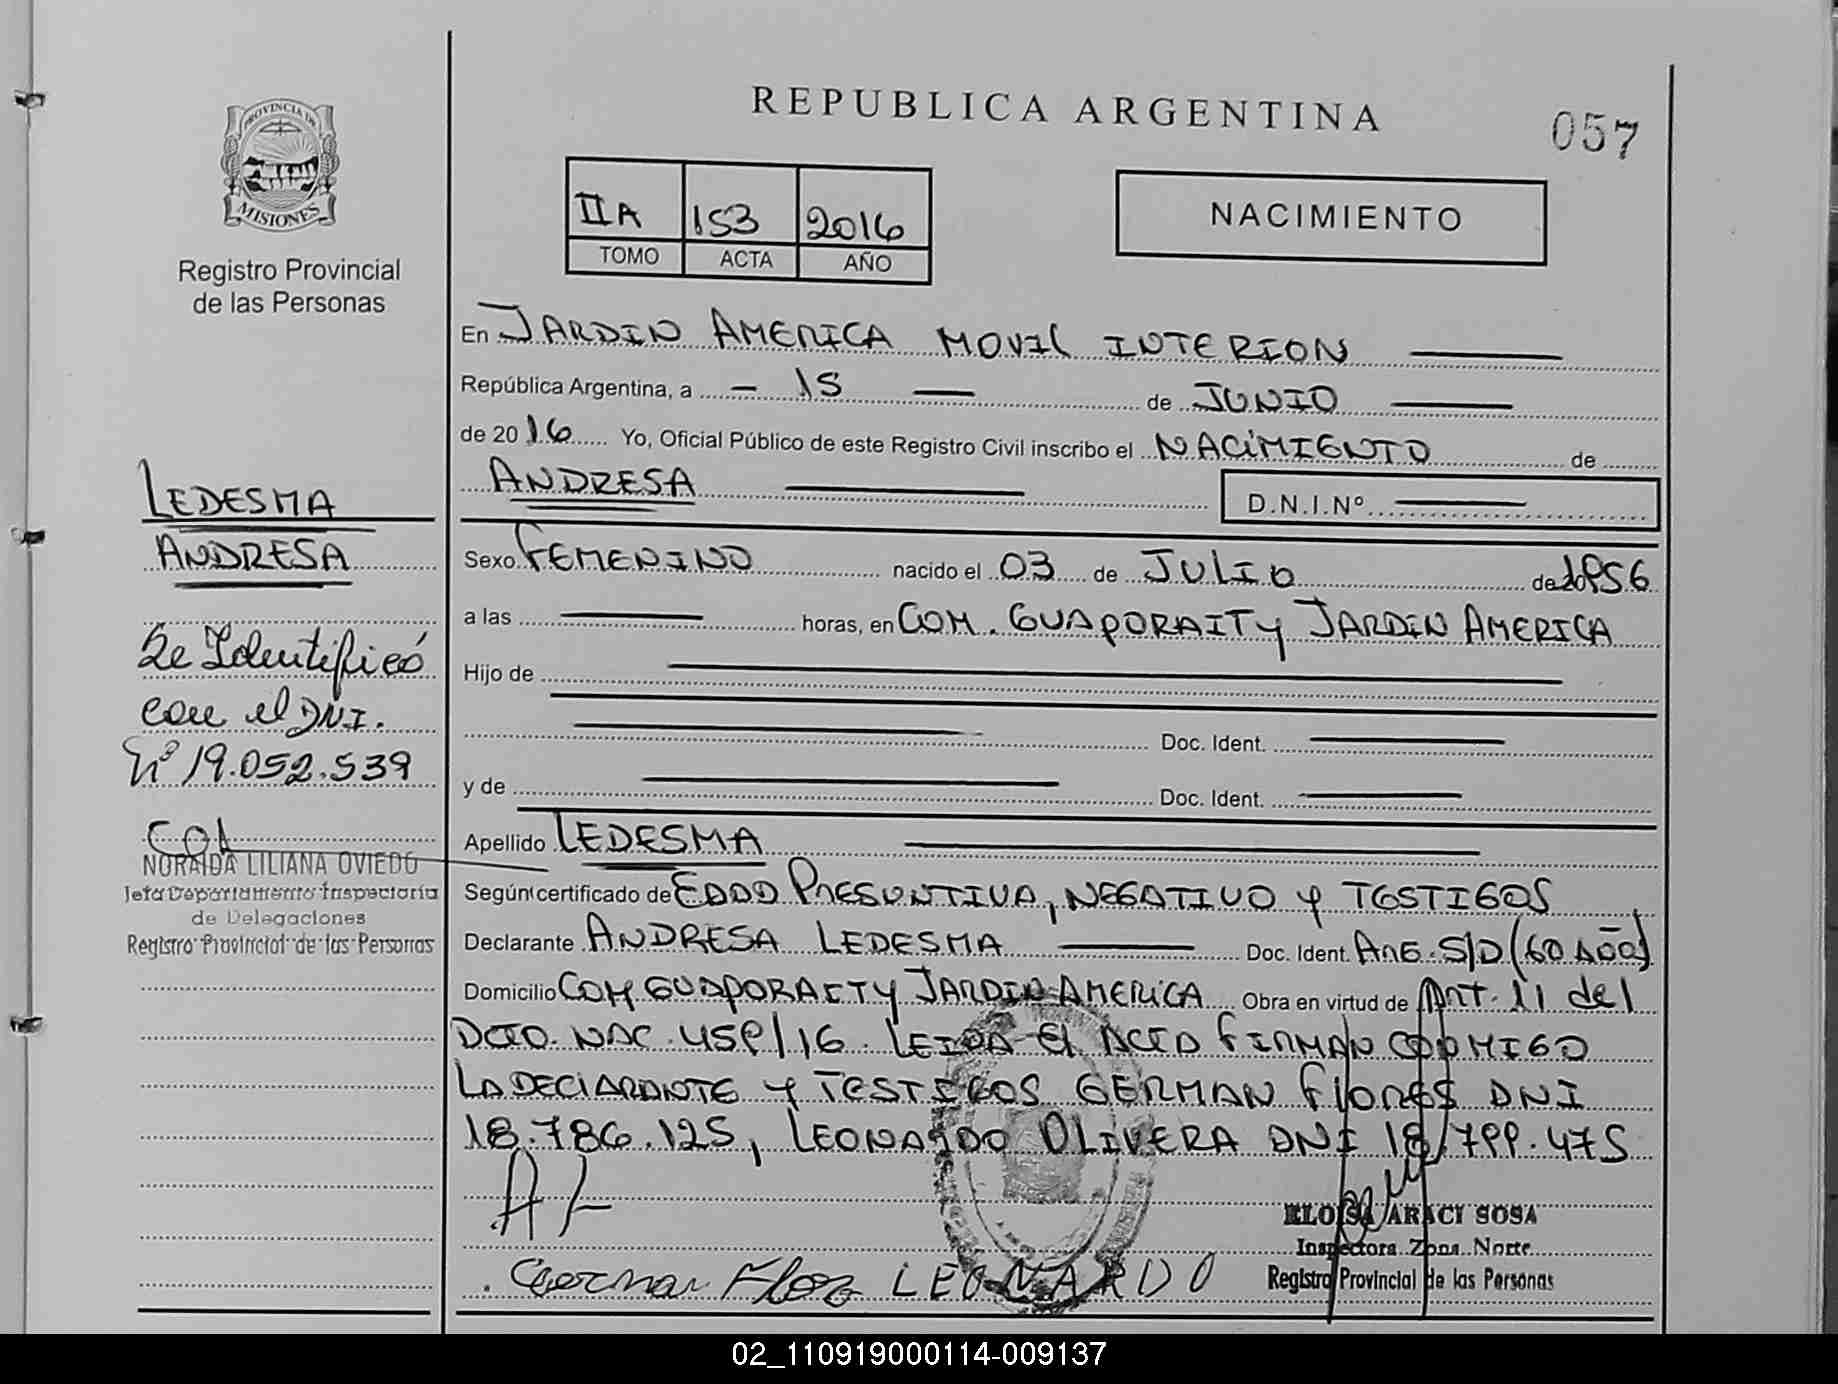 REPUBLICA ARGENTINA
057
PROVINCIA DE
MISIONES
Registro Provincial
de las Personas
IIA 153 2016
TOMO ACTA AÑO
NACIMIENTO
En JARDIN AMERICA MOVIL INTERIOR
República Argentina, a - 15 - de JUNIO
de 2016 Yo, Oficial Público de este Registro Civil inscribo el NACIMIENTO de
ANDRESA D.N.I.Nº
LEDESMA
ANDRESA
Se Identificó
con el DNI.
Nº 19.052.539
NORAIDA LILIANA OVIEDO
Jefa Departamento Inspectoría
de Delegaciones
Registro Provincial de las Personas
Sexo FEMENINO nacido el 03 de JULIO de 1956
a las horas, en COM. GUAPORAITY JARDIN AMERICA
Hijo de
Doc. Ident.
y de Doc. Ident.
Apellido LEDESMA
Según certificado de EDAD PRESUNTIVA, NEGATIVO Y TESTIGOS
Declarante ANDRESA LEDESMA Doc. Ident. ARG. S/D (60 AÑOS)
Domicilio COM GUAPORAITY JARDIN AMERICA Obra en virtud de Art. 11 del
DCTO. NAC. 459/16. LEIDA EL ACTA FIRMAN CONMIGO
LA DECLARANTE Y TESTIGOS GERMAN FLORES DNI
18.786.125, LEONARDO OLIVERA DNI 18.799.475
AL
German Flor LEONARDO
ELOISA ARACI SOSA
Inspectora Zona Norte
Registro Provincial de las Personas
02_110919000114-009137